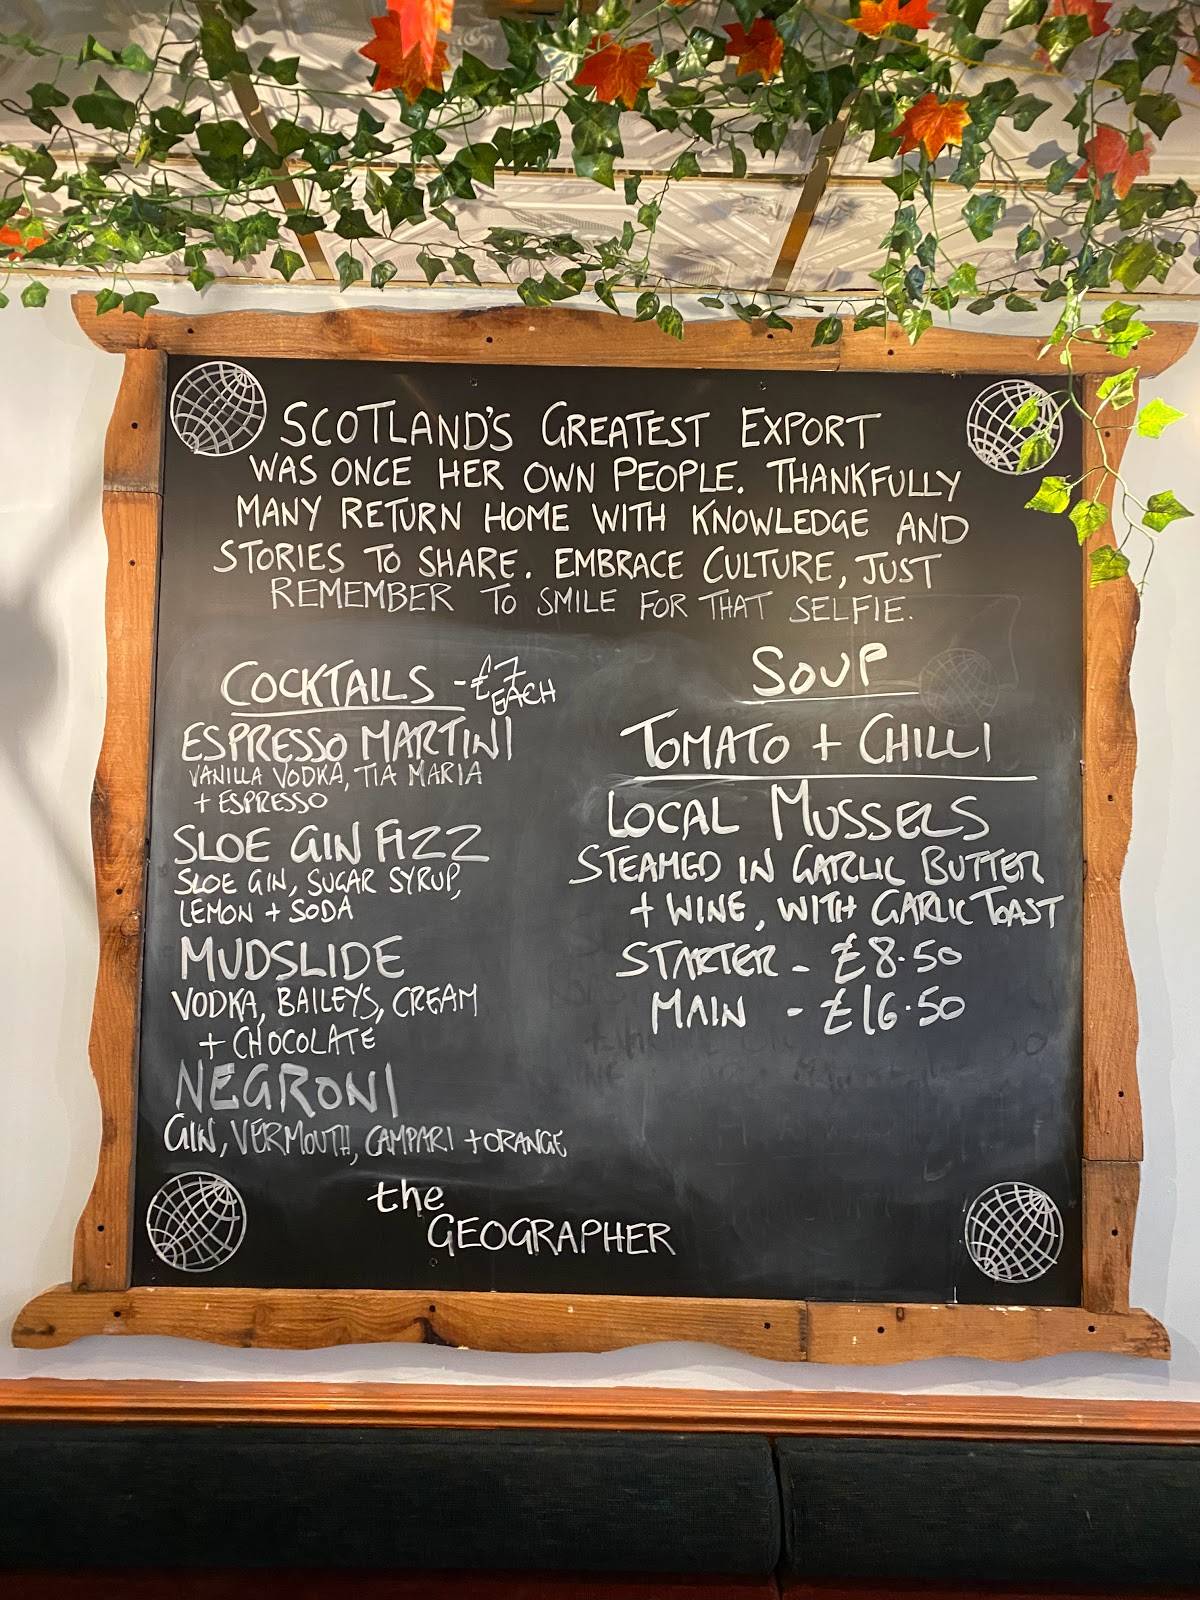 SCOTLAND'S GREATEST EXPORT
WAS ONCE HER OWN PEOPLE. THANKFULLY
MANY RETURN HOME WITH KNOWLEDGE AND
STORIES TO SHARE. EMBRACE CULTURE, JUST
REMEMBER TO SMILE FOR THAT SELFIE.
COCKTAILS - £7
EACH
ESPRESSO MARTINI
VANILLA VODKA, TIA MARIA
+ ESPRESSO
SLOE GIN FIZZ
SLOE GIN, SUGAR SYRUP,
LEMON + SODA
MUDSLIDE
VODKA, BAILEYS, CREAM
+ CHOCOLATE
NEGRONI
GIN, VERMOUTH, CAMPARI + ORANGE
SOUP
TOMATO + CHILLI
LOCAL MUSSELS
STEAMED IN GARLIC BUTTER
+ WINE, WITH GARLIC TOAST
STARTER - £8.50
MAIN - £16.50
the
GEOGRAPHER